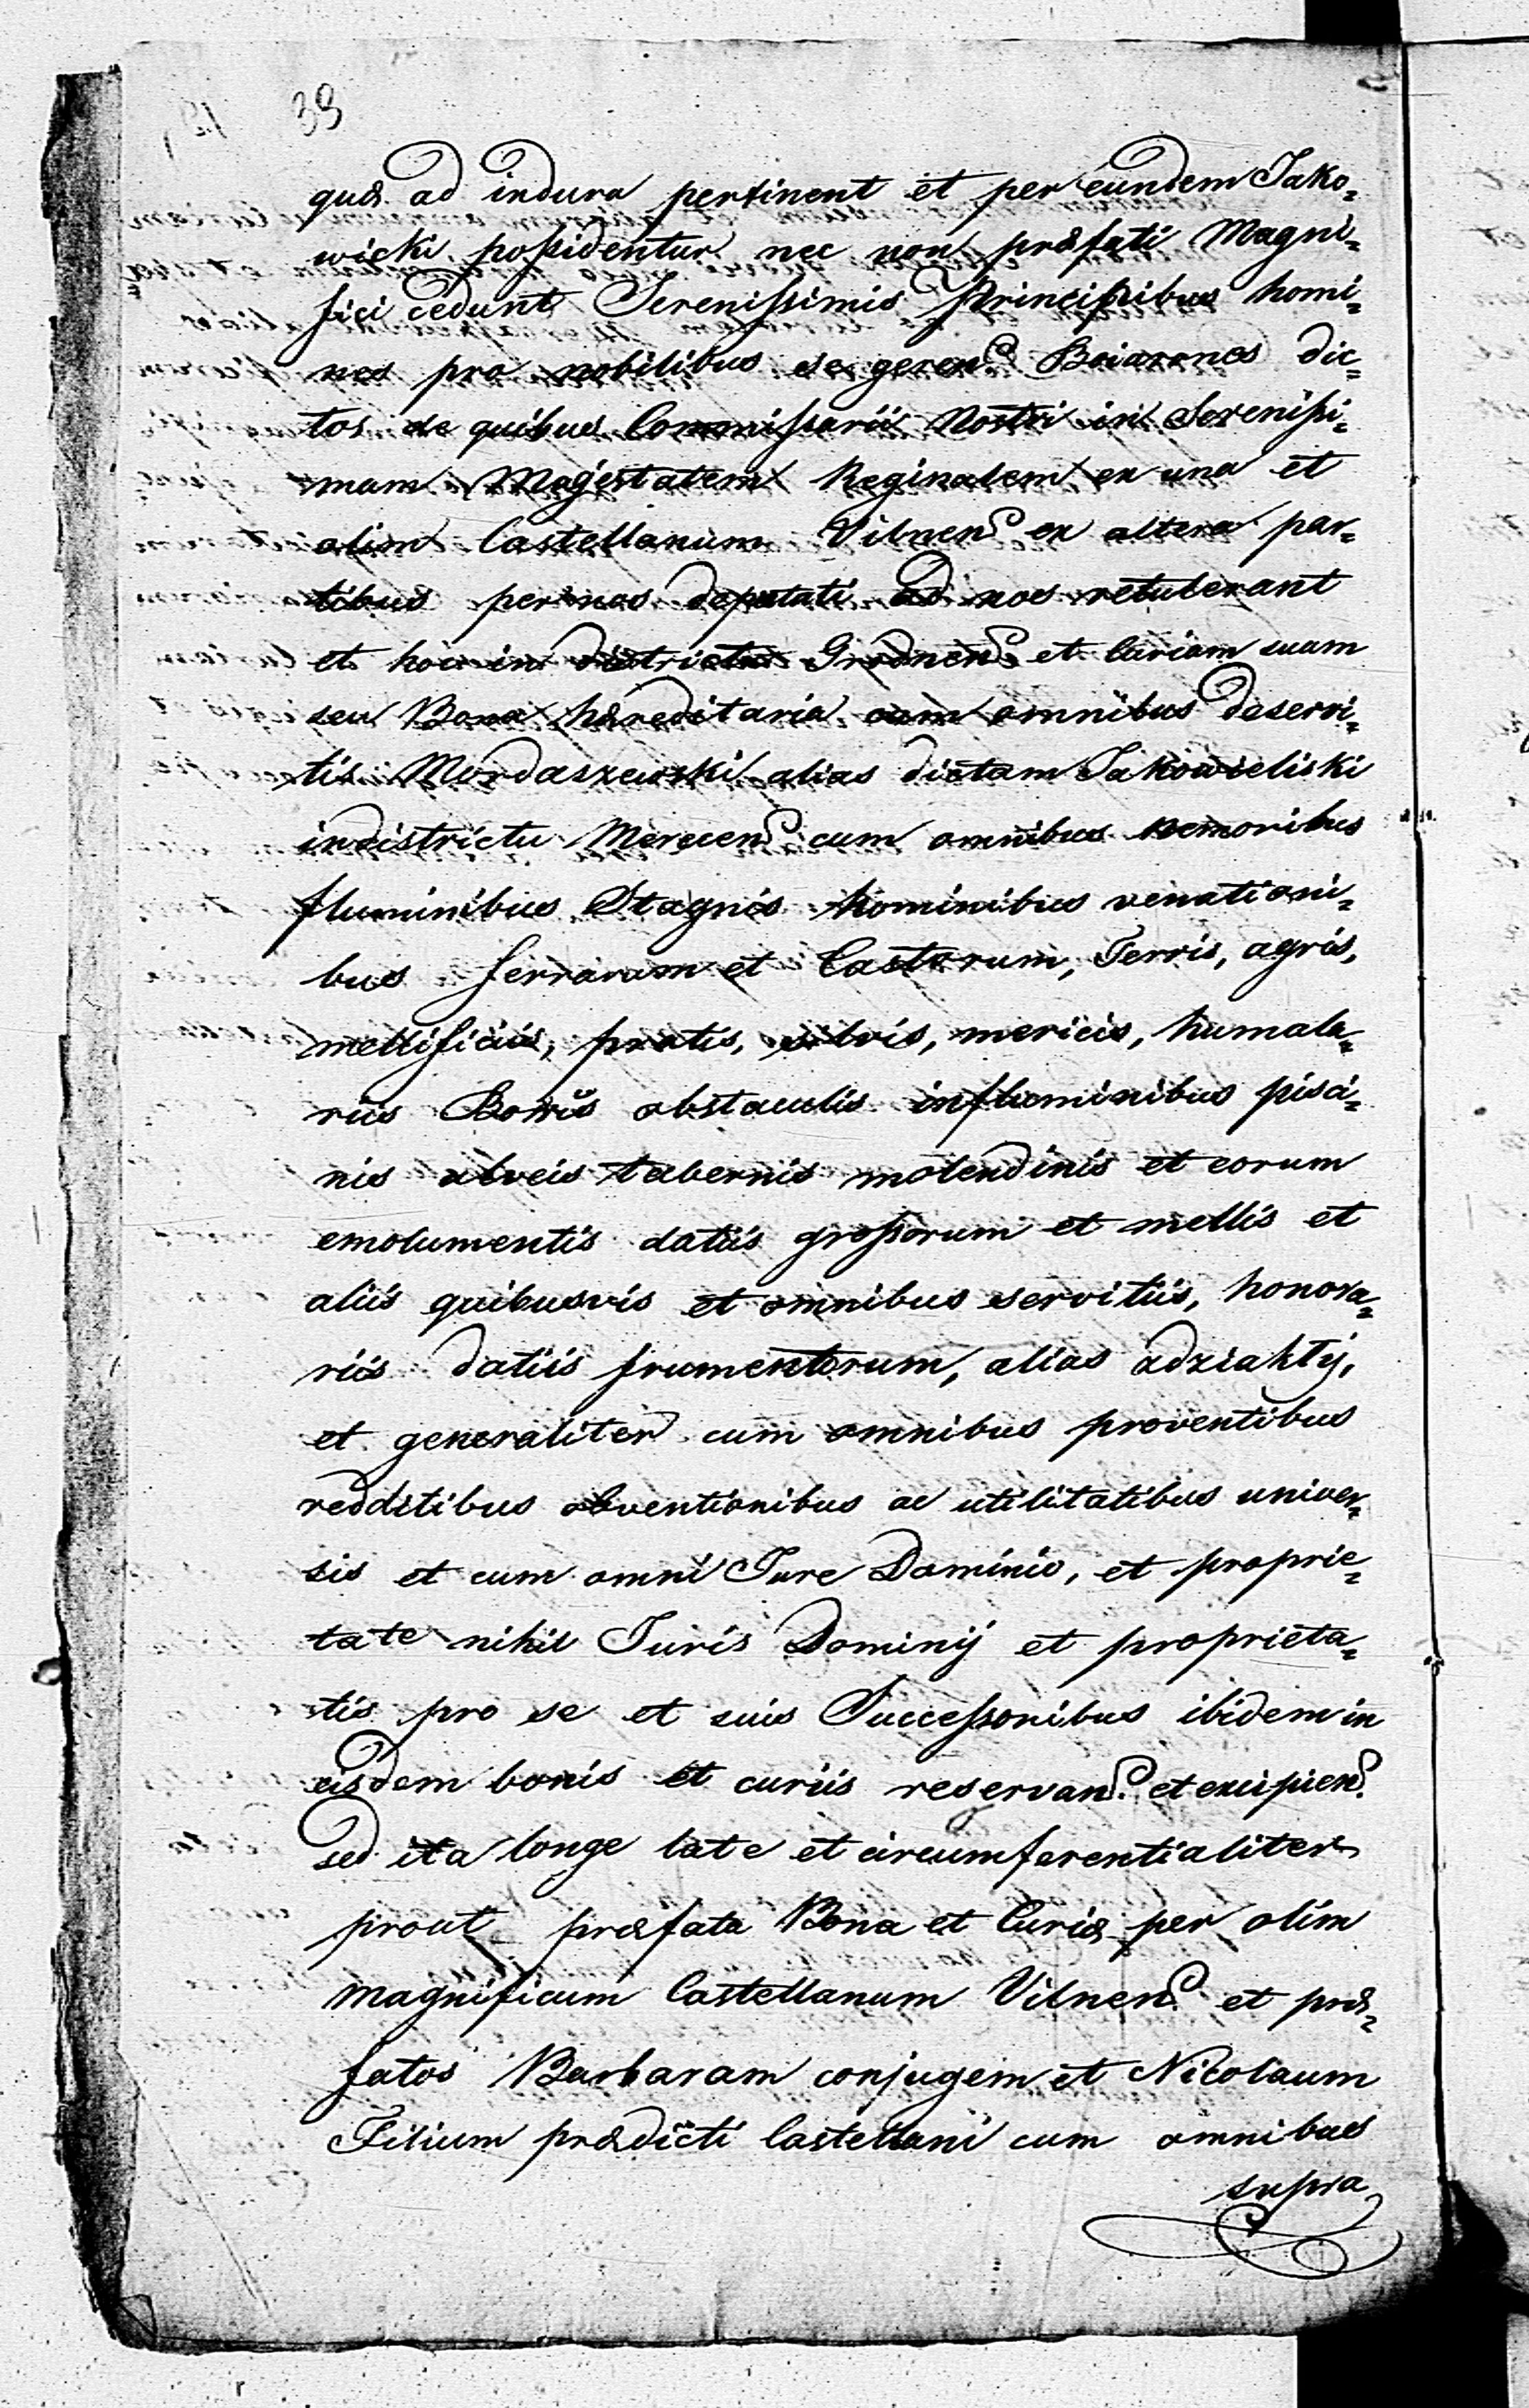 38
quæ ad indura pertinent et per eundem Jako=
wicki possidentur nec non præfati Magni=
fici cedunt Serenissimis Principibus homi=
nes pro nobilibus se geren. Boiarones dic=
tos de quibus Commissarii Nostri in Serenissi=
mam Magestatem Reginalem ex una et
olim Castellanum Vilnen. ex altera par=
tibus per nos deputati ad nos retulerant
et hoc in districtu Grodnen. et Curiam suam
seu Bona hæreditaria cum omnibus deservi=
tis Mordaszewski alias dictam Jakowieliski
indistrictu Merecen. cum omnibus nemoribus
fluminibus Stagnis hominibus venationi=
bus ferrarum et Castorum, Terris, agris,
mellificiis, pratis, silvis, mericis, humala=
riis Borris obstaculis influminibus pisci=
nis alveis tabernis molendinis et eorum
emolumentis datiis grossorum et mellis et
aliis quibusvis et omnibus servitiis, honora=
riis datiis frumentorum, alias adziakty,
et generaliter cum omnibus proventibus
redditibus obventionibus ac utilitatibus univer=
sis et cum omni Jure Dominio, et proprie=
tate nihil Juris Dominij et proprieta=
tis pro se et suis Successoribus ibidem in
eisdem bonis et curiis reservan. et excipien.
Sed ita longe late et circumferentialiter
prout præfata Bona et Curiæ per olim
magnificum Castellanum Vilnen. et præ=
fatos Barbaram conjugem et Nicolaum
Filium prædicti Castellani cum omnibus
supra